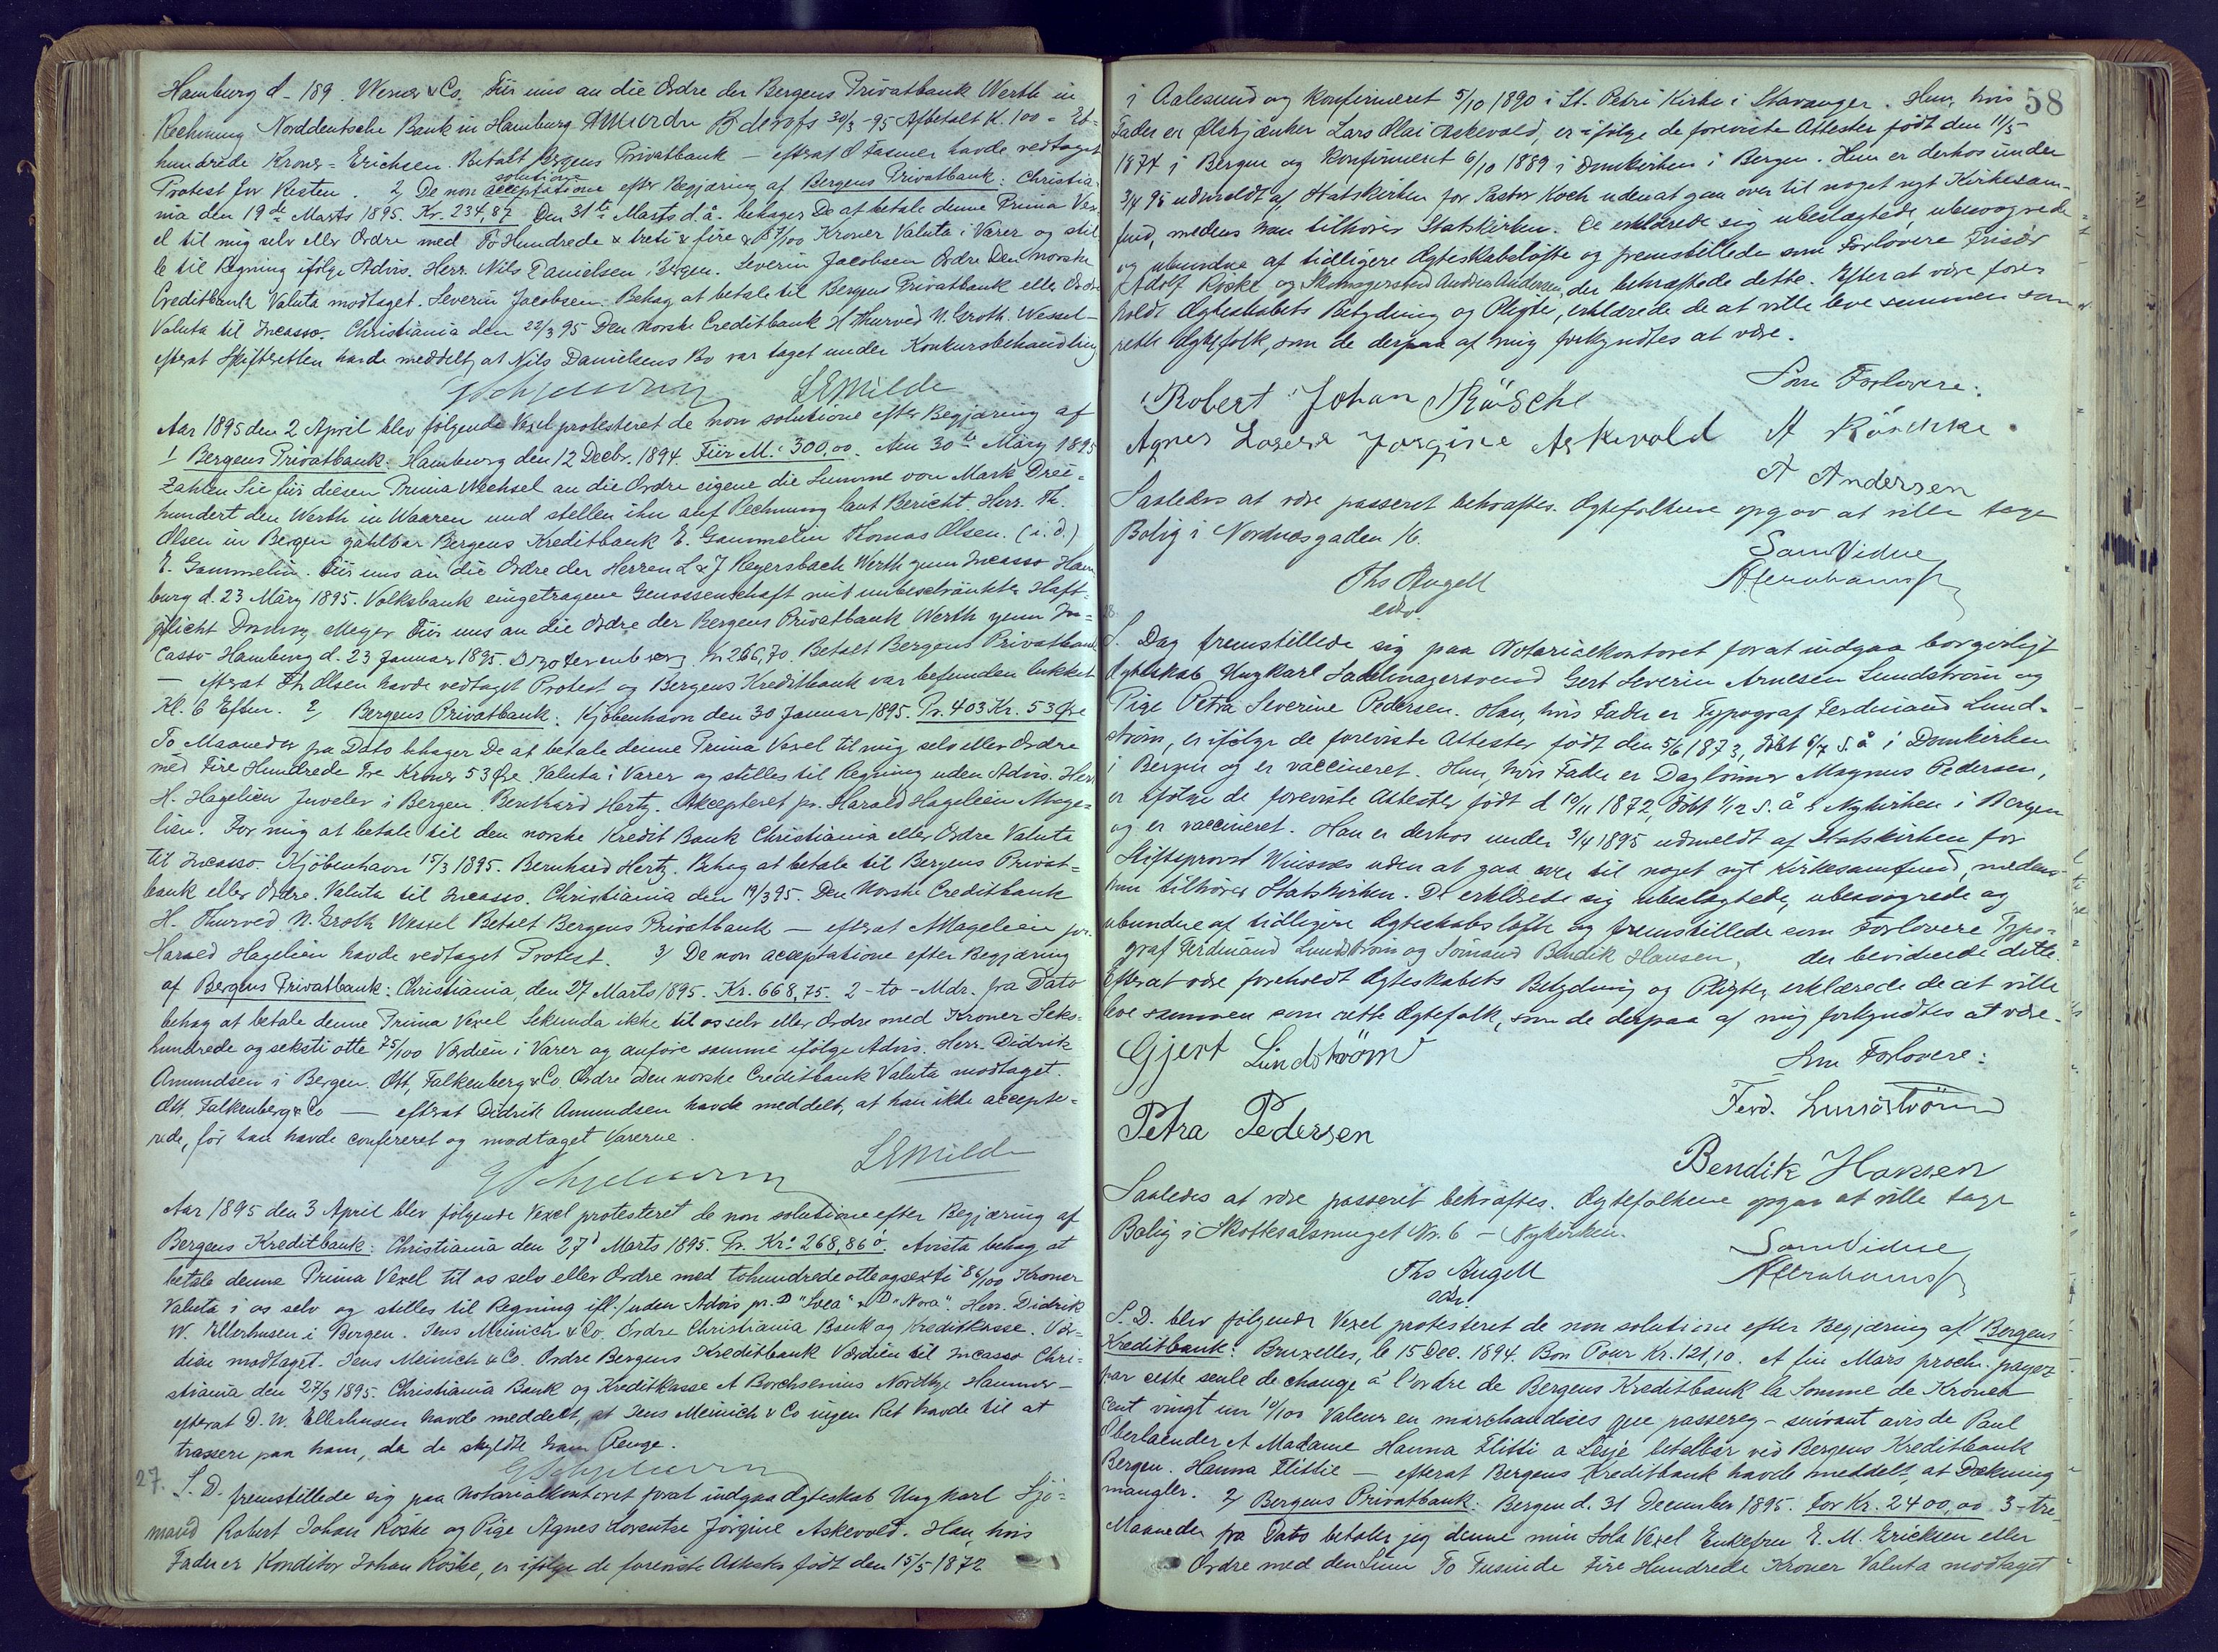 Hamburg d - 189 . Werner & Co. Für uns an die Ordre der Bergens Privatbank Werth in
Rechnung Norddeutsche Bank in Hamburg 30/3 - 95 Afbetalt K. 100 = Et=
hundrede Kroner = Erichsen. Betalt Bergens Privatbank — efterat O Fasmer havde vedtaget
solutione
Protest for Resten. 2, De non acceptatione efter Begjæring af Bergens Privatbank: Christia-
nia den 19de Marts 1895. Kr. 234,87 Den 31te Marts d.å. behager De at betale denne Prima Vex-
el til mig selv eller Ordre med To Hundrede & treti & fire & 87/100 Kroner Valuta i Varer og stil-
le til Regning ifølge Advis. Herr. Nils Danielsen i Bergen. Severin Jacobsen Ordre Den norske
Creditbank Valuta modtaget. Severin Jacobsen. Behag at betale til Bergens Privatbank eller Ordre
Valuta til Incasso. Christiania den 22/3 95 Den norske Creditbank H Thurved N. Groth. Wessel —
efterat Skifteretten havde meddelt, at Nils Danielsens Bo var taget under Konkursbehandling
LEMilde
Aar 1895 den 2 April blev følgende Vexel protesteret de non solutione efter Begjæring af
1 Bergens Privatbank: Hamburg den 12 Decbr. 1894. Für M. 300,00. Am 30te März 1895
Zahlen Sie für diesen Prima Wechsel an die Ordre eigene die Summe von Mark Drei=
hundert den Werth in Waaren und stellen ihn auf Rechnung laut Bericht. Herr. Th.
Olsen in Bergen zahlbar Bergens Kreditbank E. Gammelin Thomas Olsen. (i. d.)
E. Gammelin. Für uns an die Ordre der Herren L & J Regersbach Werth zum Incasso Ham-
burg d. 23 März 1895. Volksbank eingetragene Genossenschaft mit unbeschränkter Haft-
pflicht Meyer Für uns an die Ordre der Bergens Privatbank Werth zum In=
casso Hamburg d. 23 Januar 1895. Kr 266,70. Betalt Bergens Privatbank
— efterat Th Olsen havde vedtaget Protest og Bergens Kreditbank var befunden lukket
Kl. 6 Efterm. 2, Bergens Privatbank: Kjøbenhavn den 30 Januar 1895. Pr. 403 Kr. 53 Øre
To Maaneder fra Dato behager De at betale denne Prima Vexel til mig selv eller Ordre
med Fire Hundrede Tre Kroner 53 Øre. Valuta i Varer og stilles til Regning uden Advis. Herr
H. Hagelien Juveler i Bergen. Bernhard Hertz. Akcepteret pr. Harald Hagelien M Hage-
lien. For mig at betale til den norske Kredit Bank Christiania eller Ordre Valuta
til Incasso. Kjöbenhavn 15/3 1895. Bernhard Hertz. Behag at betale til Bergens Privat=
bank eller Ordre. Valuta til Incasso. Christiania den 19/3 95. Den Norske Creditbank
H. Thurved N. Groth Wessel Betalt Bergens Privatbank — efterat M Hagelien pr.
Harald Hagelien havde vedtaget Protest. 3/ De non acceptatione efter Begjæring
af Bergens Privatbank: Christiania, den 27 Marts 1895. Kr. 668,75. 2 - to - Mdr. fra Dato
behag at betale denne Prima Vexel Sekunda ikke til os selv eller Ordre med Kroner Seks-
hundrede og seksti otte 75/100 Værdien i Varer og anføre samme ifølge Advis. Herr. Didrik
Amundsen i Bergen. Ott. Falkenberg & Co. Ordre Den norske Creditbank Valuta modtaget.
Ott. Falkenberg & Co — efterat Didrik Amundsen havde meddelt, at han ikke accepte=
rede, før han havde confereret og modtaget Varerne.
LEMilde
Aar 1895 den 3 April blev følgende Vexel protesteret de non solutione efter Begjæring af
Bergens Kreditbank: Christiania den 27d Marts 1895. Pr. Kr. 268,86 ö. Avista behag at
betale denne Prima Vexel til os selv eller Ordre med tohundrede otteogsexti 86/100 Kroner
Valuta i os selv og stilles til Regning ifl. / uden Advis pr. D "Svea" & D "Nora". Herr. Didrik
W. Ellerhusen i Bergen. Jens Meinich & Co. Ordre Christiania Bank og Kreditkasse. Vær-
dien modtaget. Jens Meinich & Co. Ordre Bergens Kreditbank Værdien til Incasso Chri-
stiania den 27/3 1895. Christiania Bank og Kreditkasse A Borchsenius Nordbye Hammer —
efterat D. W. Ellerhusen havde meddelt, at Jens Meinich & Co ingen Ret havde til at
trassere paa ham, da de skyldte ham Penge.
27. S. D. fremstillede sig paa Notarialkontoret forat indgaa Ægteskab Ungkarl Sjö=
mand Robert Johan Röske og Pige Agnes Lorentse Jörgine Askevold. Han, hvis
Fader er Konditor Johan Röske, er ifølge de foreviste Attester født den 15/5 1872
58
i Aalesund og konfirmeret 5/10 1890 i St. Petri Kirke i Stavanger. Hun, hvis
Fader er Ølskjænker Lars Olai Askevold, er ifølge de foreviste Attester født den 11/5
1874 i Bergen og konfirmeret 6/10 1889 i Domkirken i Bergen. Hun er derhos under
3/4 95 udmeldt af Statskirken for Pastor Koch uden at gaa over til noget nyt Kirkesam-
fund, medens han tilhører Statskirken. De erklærede sig ubeslægtede, ubesvogrede
og ubundne af tidligere Ægteskabsløfte og fremstillede som Forlovere Frisör
Adolf Röske og Skomagersvend Andreas Andersen, der bekræftede dette. Efter at være fore-
holdt Ægteskabets Betydning og Pligter, erklærede de at ville leve sammen som
rette Ægtefolk, som de derpaa af mig forkyndtes at være.
Som Forlovere:
Robert Johan Röschke
Agnes Losense Jorgine Askevold A Röschke.
A Andersen
Saaledes at være passeret bekræftes. Ægtefolkene opgav at ville tage
Bolig i Nordnæsgaden 16.
Som Vidne
Ths Angell
28.
S. Dag fremstillede sig paa Notarialkontoret for at indgaa borgerligt
Ægteskab Ungkarl Sadelmagersvend Gert Severin Arnesen Lundström og
Pige Petra Severine Pedersen. Han, hvis Fader er Typograf Ferdinand Lund-
ström, er ifølge de foreviste Attester født den 5/6 1873, döbt 6/7 s. å i Domkirken
i Bergen og er vaccineret. Hun, hvis Fader er Daglönner Magnus Pedersen,
er ifølge de foreviste Attester født d 10/11 1872, döbt 1/12 s. å i Nykirken i Bergen
og er vaccineret. Han er derhos under 3/4 1895 udmeldt af Statskirken for
Stiftsprovst Wiisnes uden at gaa over til noget nyt Kirkesamfund, medens
hun tilhører Statskirken. De erklærede sig ubeslægtede, ubesvogrede og
ubundne af tidligere Ægteskabsløfte og fremstillede som Forlovere Typo-
graf Ferdinand Lundström og Sömand Bendik Hansen, der bevidnede dette.
Efter at være foreholdt Ægteskabets Betydning og Pligter, erklærede de at ville
leve sammen som rette Ægtefolk, som de derpaa af mig forkyndtes at være.
Gjert Lindström
Som Forlovere:
Ferd. Lundström
Petra Pedersen
Bendik Hansen
Saaledes at være passeret bekræftes. Ægtefolkene opgav at ville tage
Bolig i Skottesalsmuget Nr. 6 — Nykirken.
Som Vidne
Ths Angell
S. D. blev følgende Vexel protesteret de non solutione efter Begjæring af Bergens
Kreditbank: Bruxelles, le 15 Dec. 1894. Bon Pour Kr. 121,10. A fin Mars proch. payez
par cette seule de change á l'ordre de Bergens Kreditbank la Somme de Kronen
cent vingt un 10/100 Valeur en marchandises que passerez - suivant avis de Paul
Oberlaender A Madame Hanna Flitti a Lesje betalbar ved Bergens Kreditbank
Bergen. Hanna Flittie — efterat Bergens Kreditbank havde meddelt, at Dækning
mangler. 2/ Bergens Privatbank: Bergen d. 31 December 1895. For Kr. 2400,00 3 - tre
Maaneder fra Dato betaler jeg denne min Sola Vexel Enkefru E. M. Ericksen eller
Ordre med den Sum To Tusinde Fire Hundrede Kroner Valuta modtaget